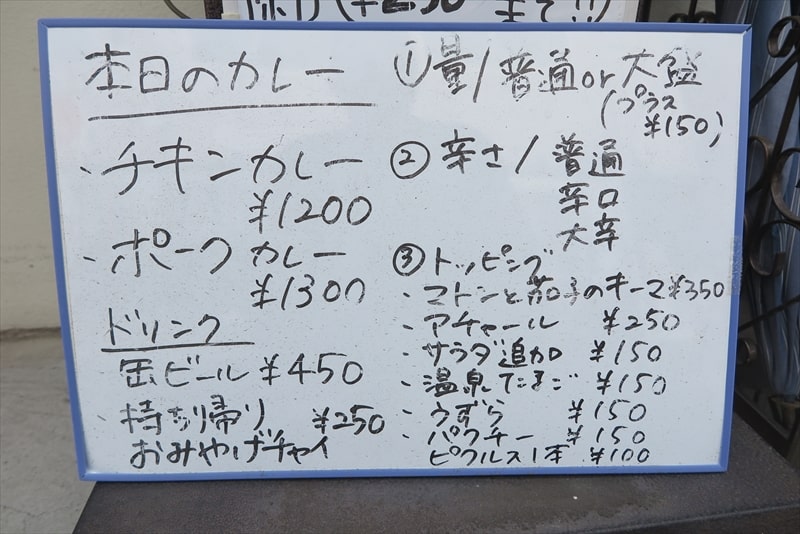 本日のカレー
・チキンカレー
¥1200
・ポークカレー
¥1300
ドリンク
缶ビール ¥450
持ち帰り ¥250
おみやげチャイ
①量/普通or大盛
(プラス
¥150)
②辛さ/普通
辛口
大辛
③トッピング
・マトンと茄子のキーマ¥350
・アチャール ¥250
・サラダ追加 ¥150
・温泉たまご ¥150
・うずら ¥150
・パクチー ¥150
ピクルス1本 ¥100